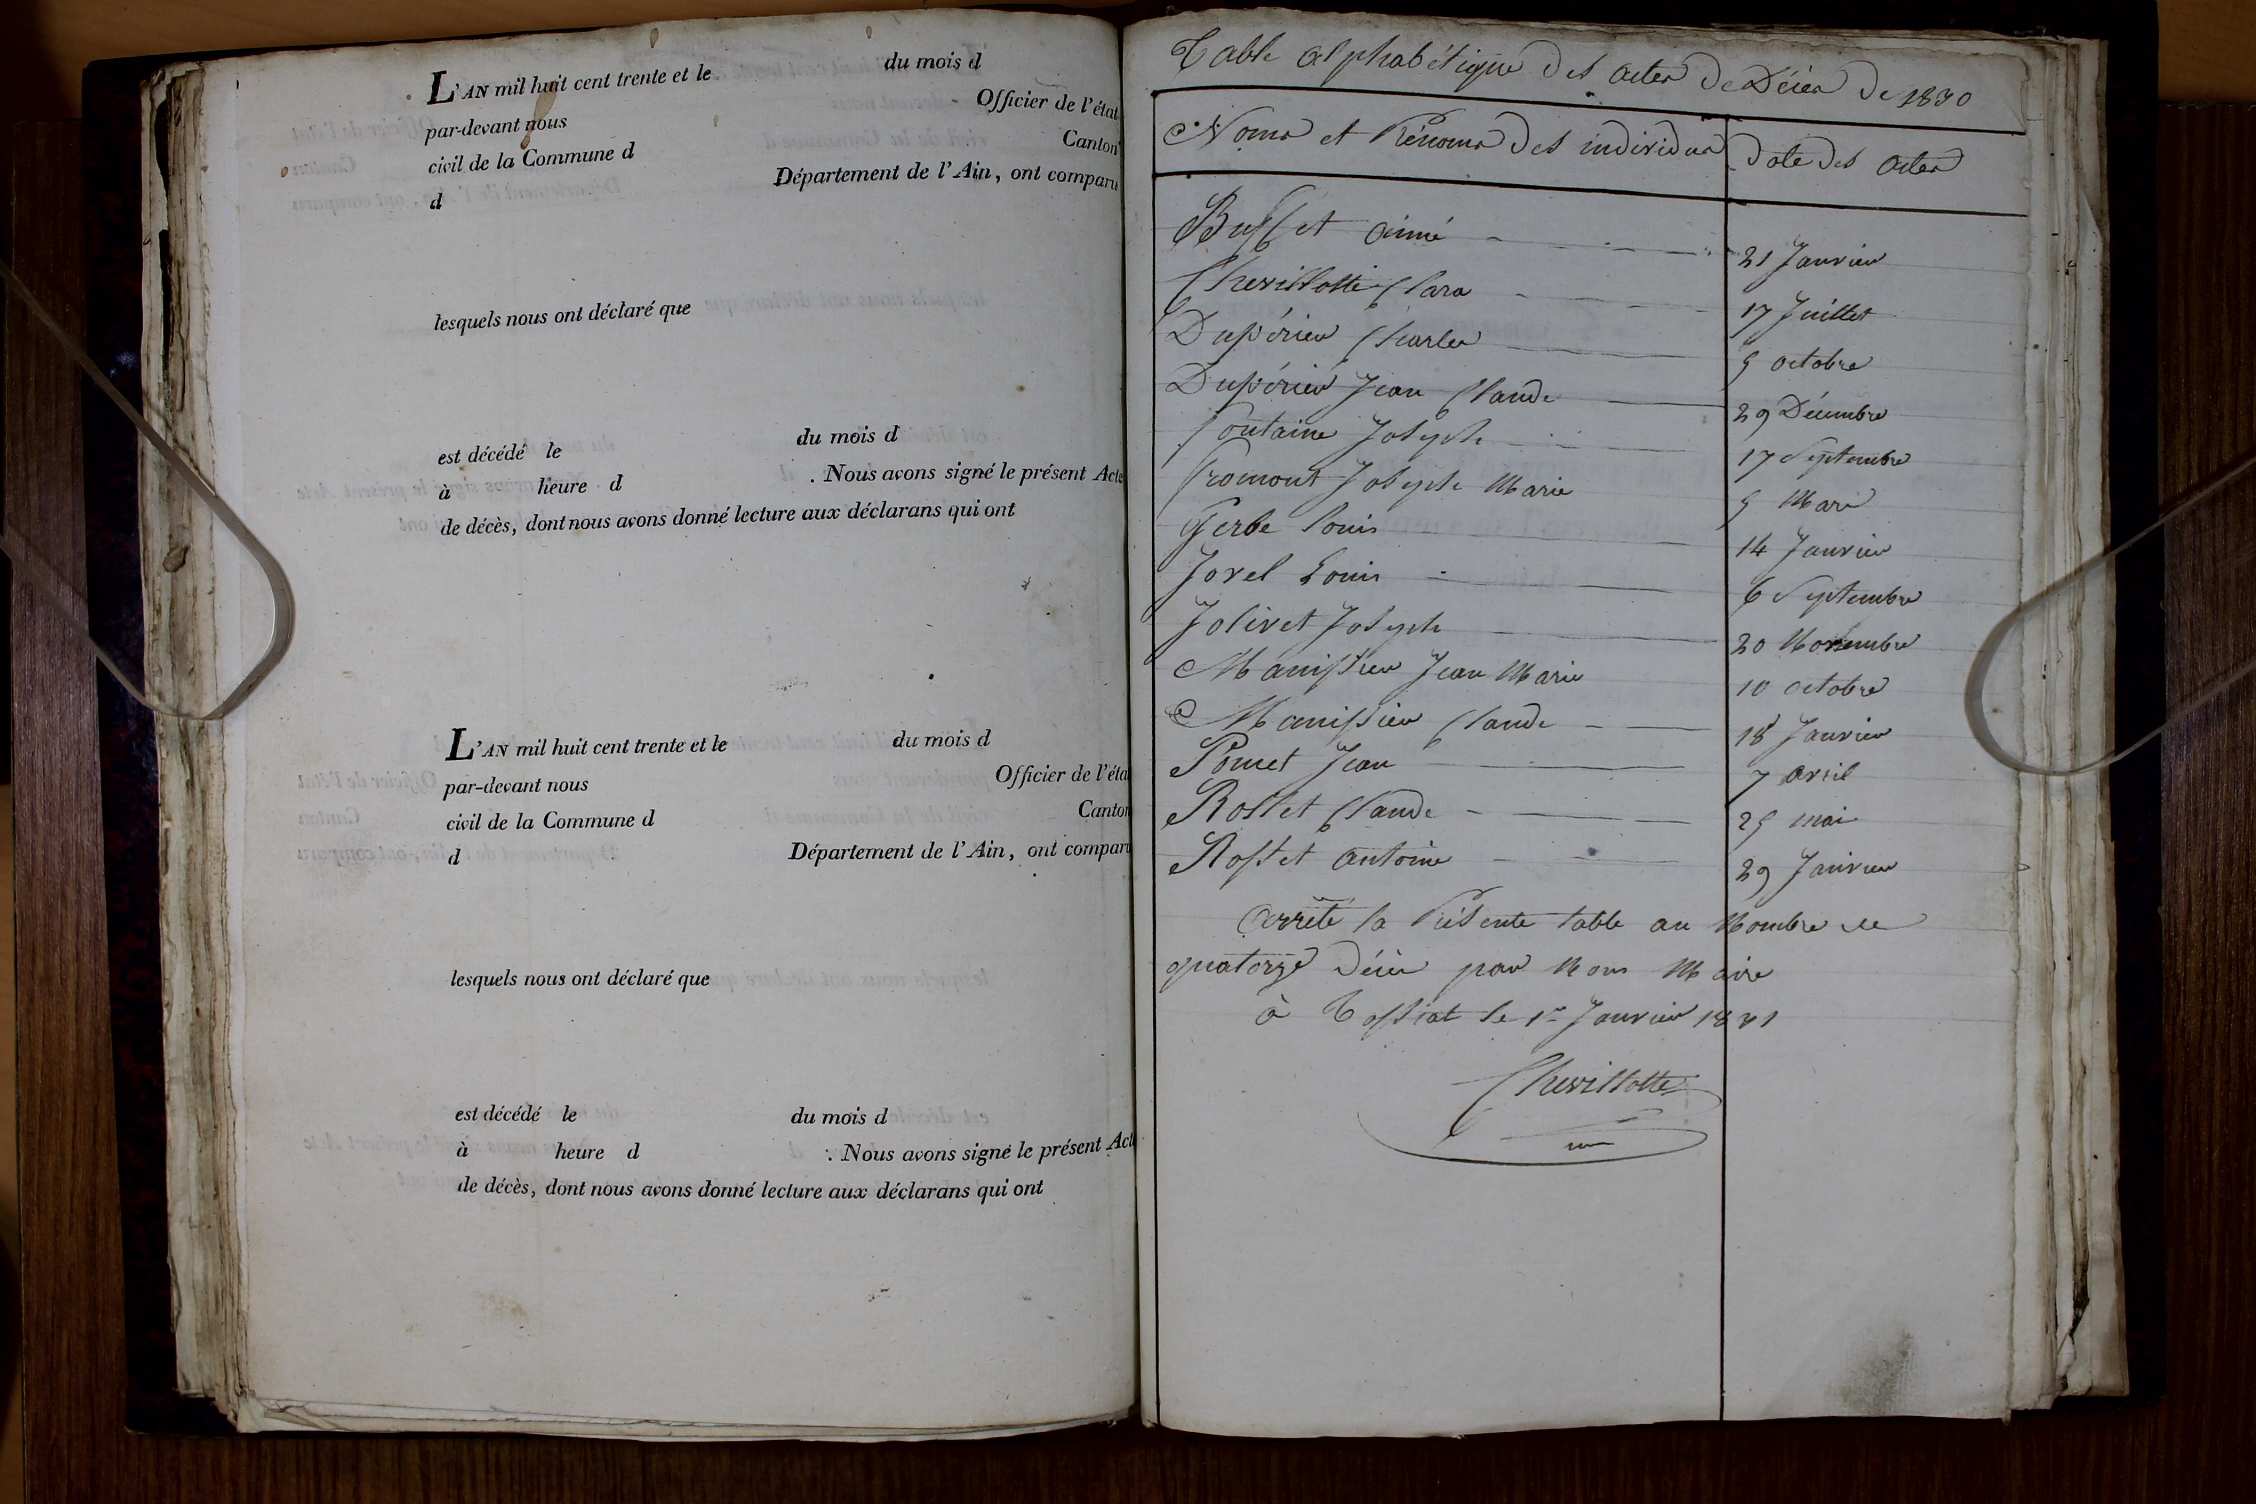 L'AN mil huit cent trente et le du mois d
par-devant nous Officier de l'état
civil de la Commune d Canton
d Département de l'Ain, ont comparu
lesquels nous ont déclaré que
est décédé le du mois d
à heure d . Nous avons signé le présent Acte
de décès, dont nous avons donné lecture aux déclarans qui ont
L'AN mil huit cent trente et le du mois d
par-devant nous Officier de l'éta
civil de la Commune d Canton
d Département de l'Ain, ont comparu
lesquels nous ont déclaré que
est décédé le du mois d
à heure d . Nous avons signé le présent Acte
de décès, dont nous avons donné lecture aux déclarans qui ont
Table alphabétique des actes de Décès de 1830
Noms et Prénoms des individus date des actes
Buffet aimé 21 Janvier
Chevillotte Clara 17 Juillet
Dupérier Charles 5 octobre
Dupérier Jean Claude 29 Décembre
Fontaine Joseph 17 Septembre
Fromont Joseph Marie 5 Mars
Gerbe Louis 14 Janvier
Jovel Louis 6 Septembre
Jolivet Joseph 20 Novembre
Manissier Jean Marie 10 octobre
Manissier Claude 18 Janvier
Poncet Jean 7 avril
Rosset Claude 25 mai
Rosset antoine 29 Janvier
arrêté la Présente table au Nombre de
quatorze Décès par Nous Maire
à Tossiat le 1er Janvier 1831
Chevillotte